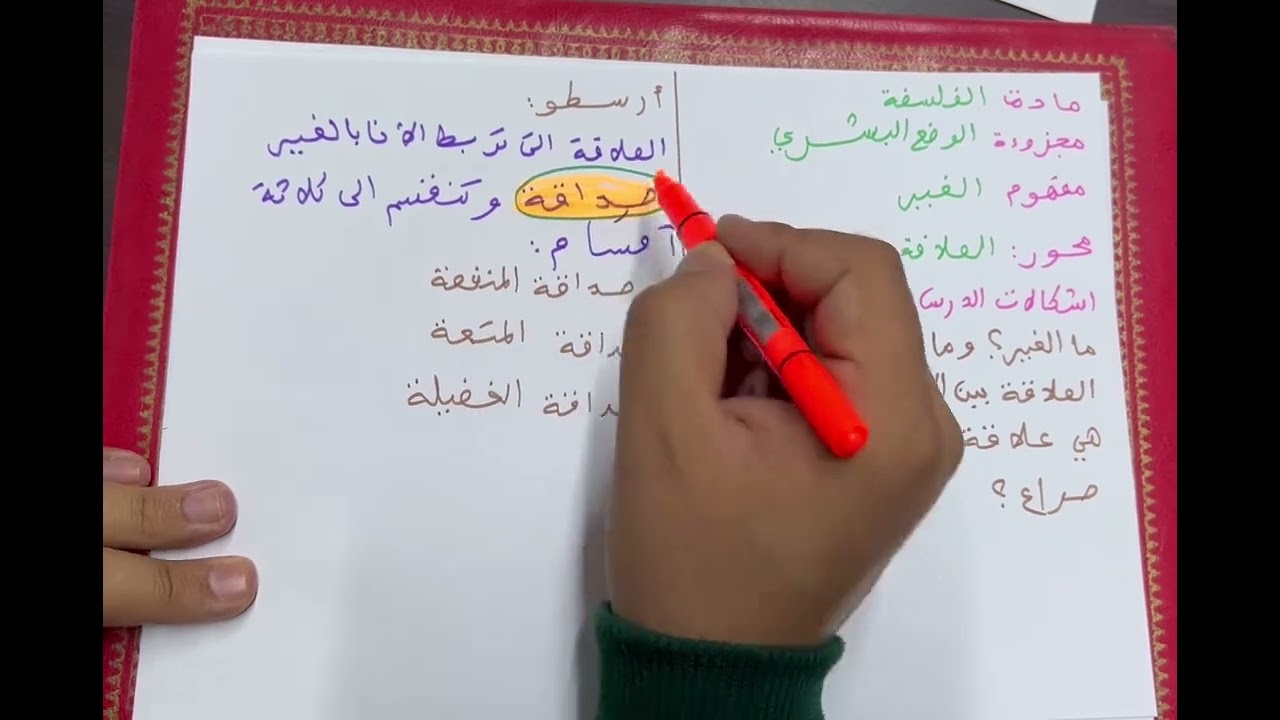 مادة الفلسفة
مجزوءة الوضع البشري
مفهوم الغير
محور: العلاقة
اشكالات الدرس
ما الغير؟ وما
العلاقة بين
هي علاقة
صراع؟
أرسطو:
العلاقة التي تربط الأنا بالغير
صداقة وتنقسم الى ثلاثة
أقسام:
صداقة المنفعة
صداقة المتعة
صداقة الفضيلة